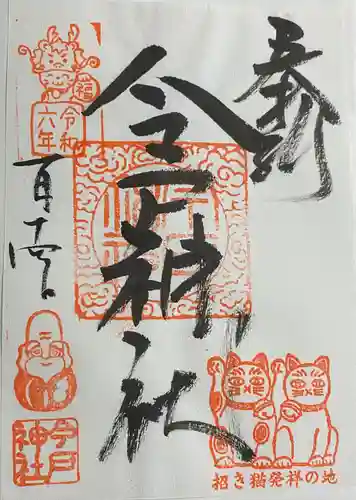 奉拝
今戸神社
福
令和
六年
今戸
神社
招き猫発祥の地